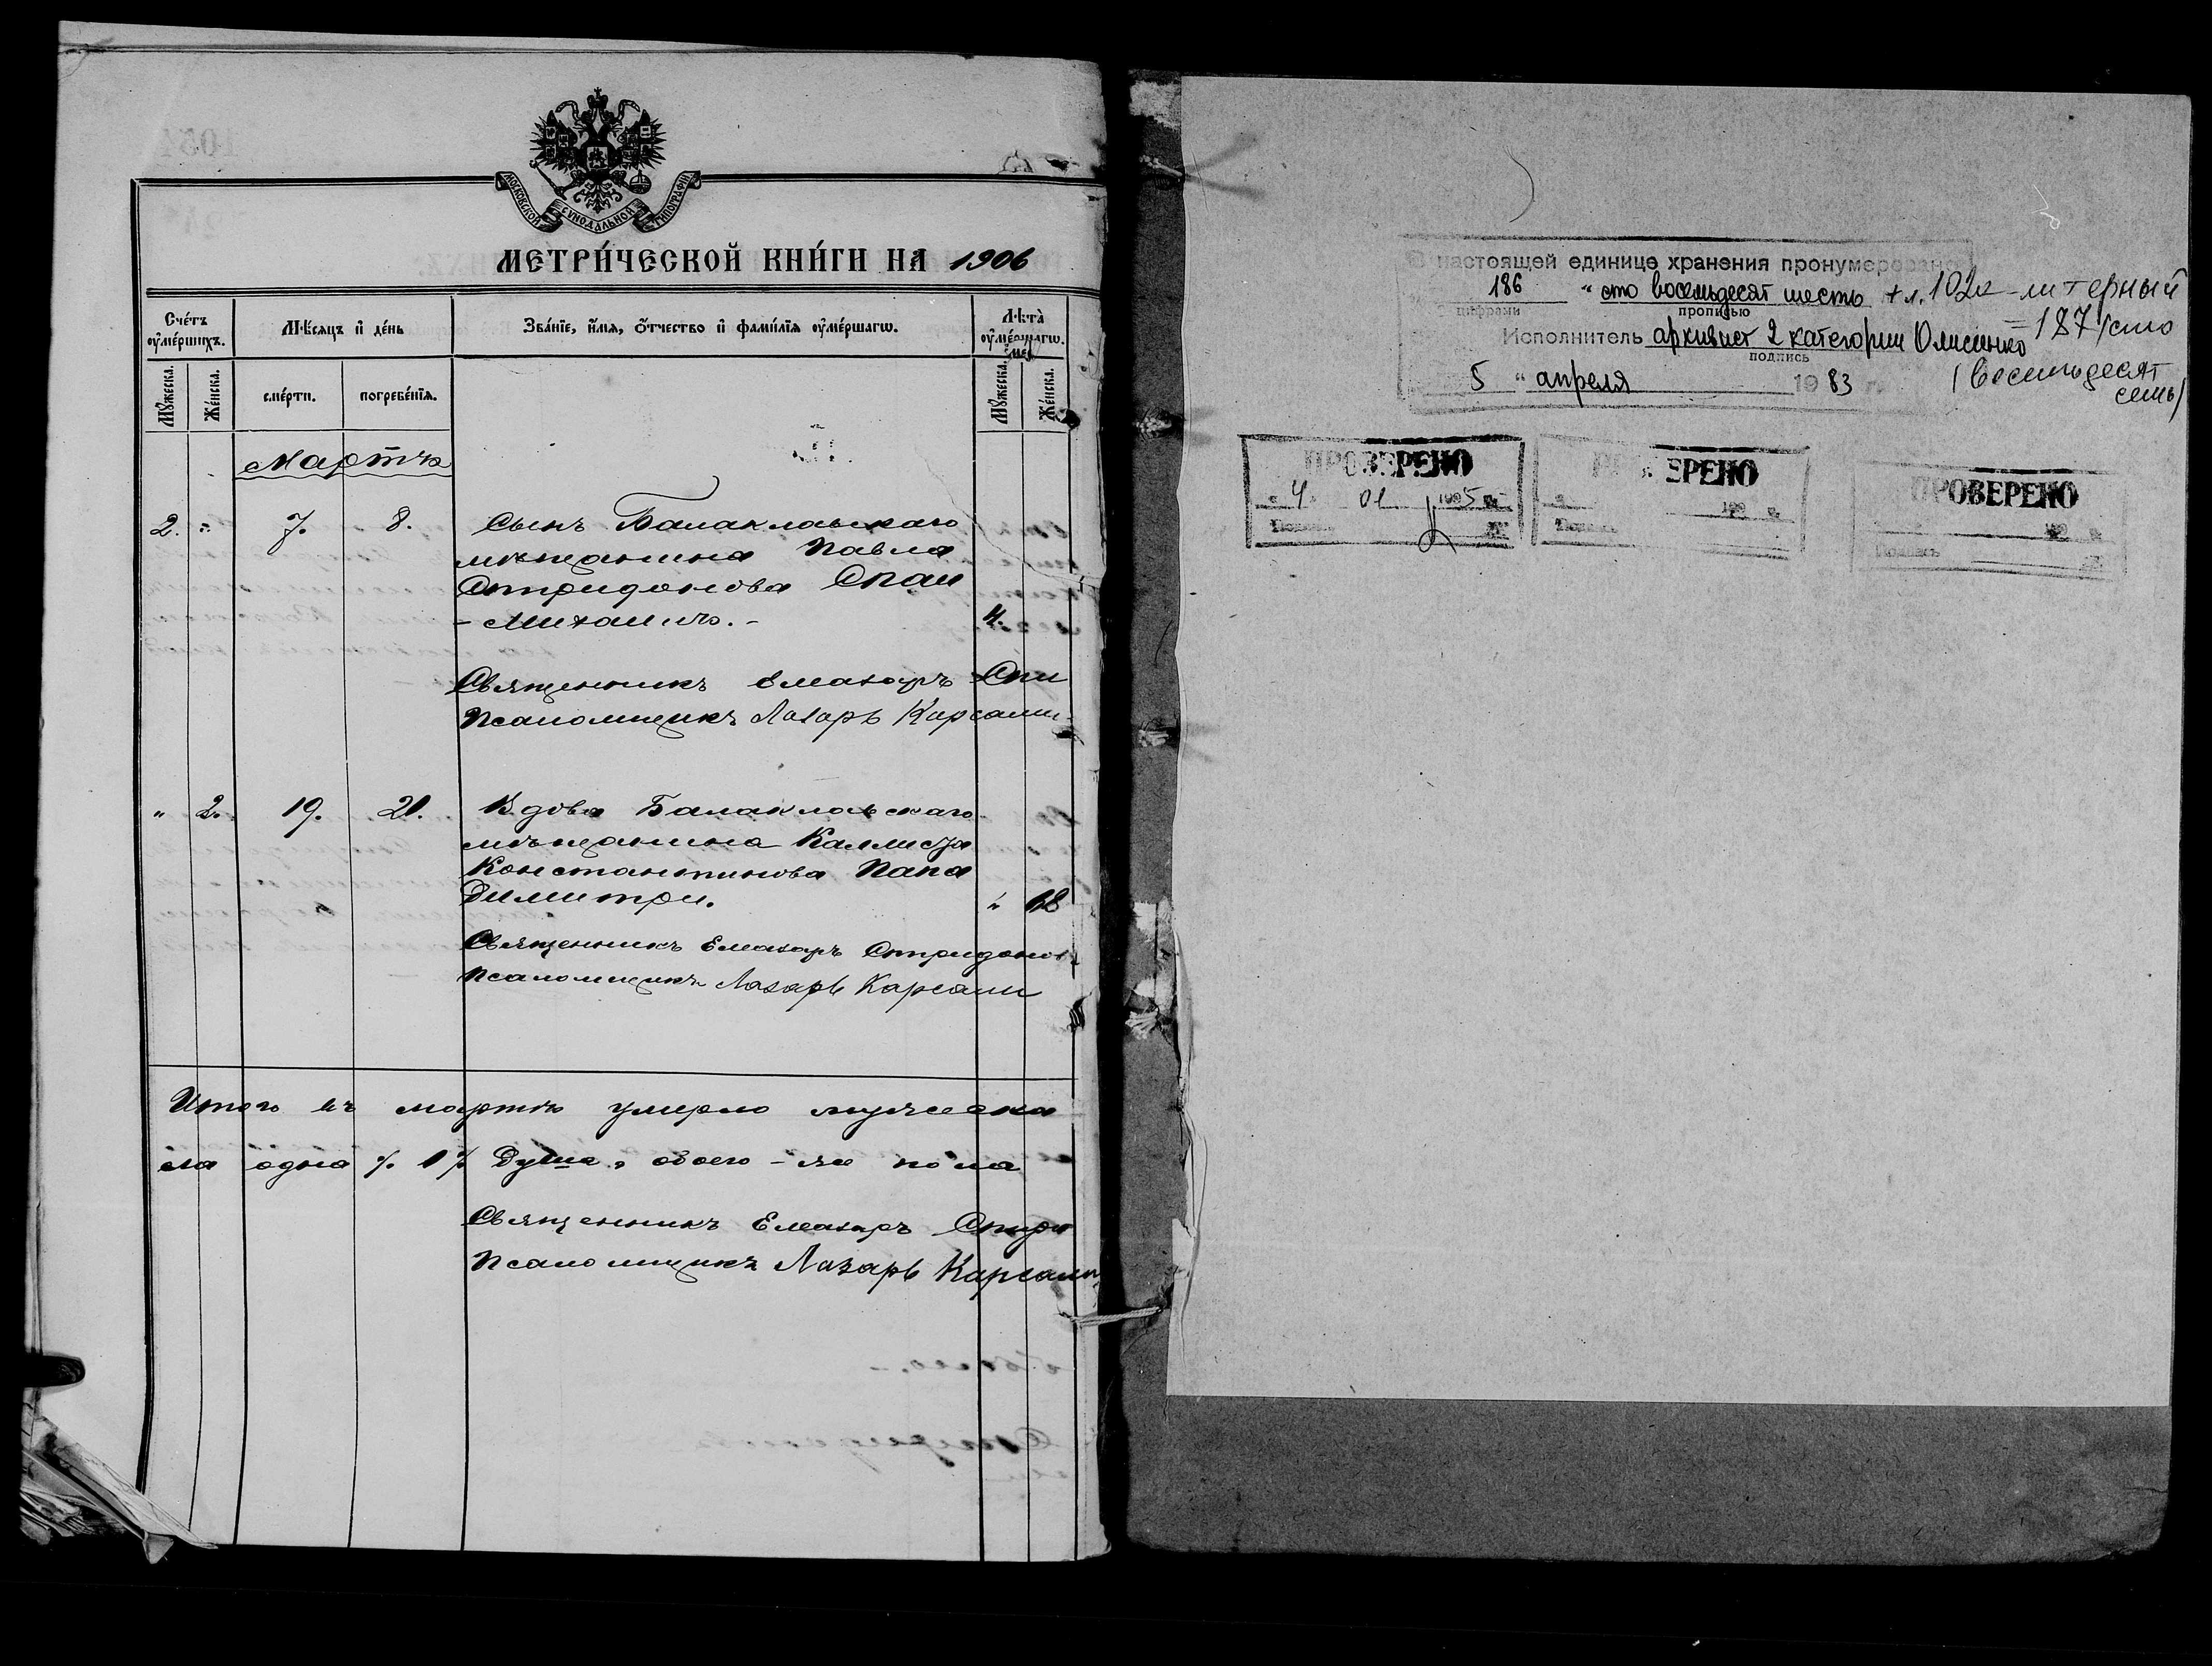 МОСКОВСКОЙ СѴНОДАЛЬНОЙ ТИПОГРАФІИ
МЕТРИ́ЧЕСКОЙ КНИ́ГИ НА 1906
Сче́тъ оумершихъ.
Мѣсяцъ и де́нь
Зва́нїе, и́мя, о́тчество и фами́лїя оуме́ршагѡ.
Лѣта̀ оуме́ршагѡ.
Мꙋжеска.
Же́нска.
сме́рти.
погребе́нїя.
Мꙋжеска.
Же́нска.
Мартъ
2. 7. 8. Сынъ Балаклавскаго
мѣщанина Павла
Спиридонова Спаи
- Михаилъ. -
Священникъ Елеазаръ Спи
Псаломщикъ Лазарь Карсали
" 2. 19. 21. Вдова Балаклавскаго
мѣщанина Каллиста
Константинова Папа
Димитри. " 68
Священникъ Елеазаръ Спиридонов
Псаломщикъ Лазарь Карсали
Итого въ мартѣ умерло мужеска
ла одна /. 1 /. Душа, обоего - же пола
Священникъ Елеазаръ Спири
Псаломщикъ Лазарь Карсали
В настоящей единице хранения пронумеровано
186 " сто восемьдесят шесть + л. 102а - литерный
цифрами прописью
= 187 /сто
Исполнитель архивист 2 категории
подпись
(восемьдесят
семь)
5 " апреля 1983 г.
ПРОВЕРЕНО
" 4 " 01 1995 г.
Подпись
ПРОВЕРЕНО
199 г.
Подпись
ПРОВЕРЕНО
199 г.
Подпись